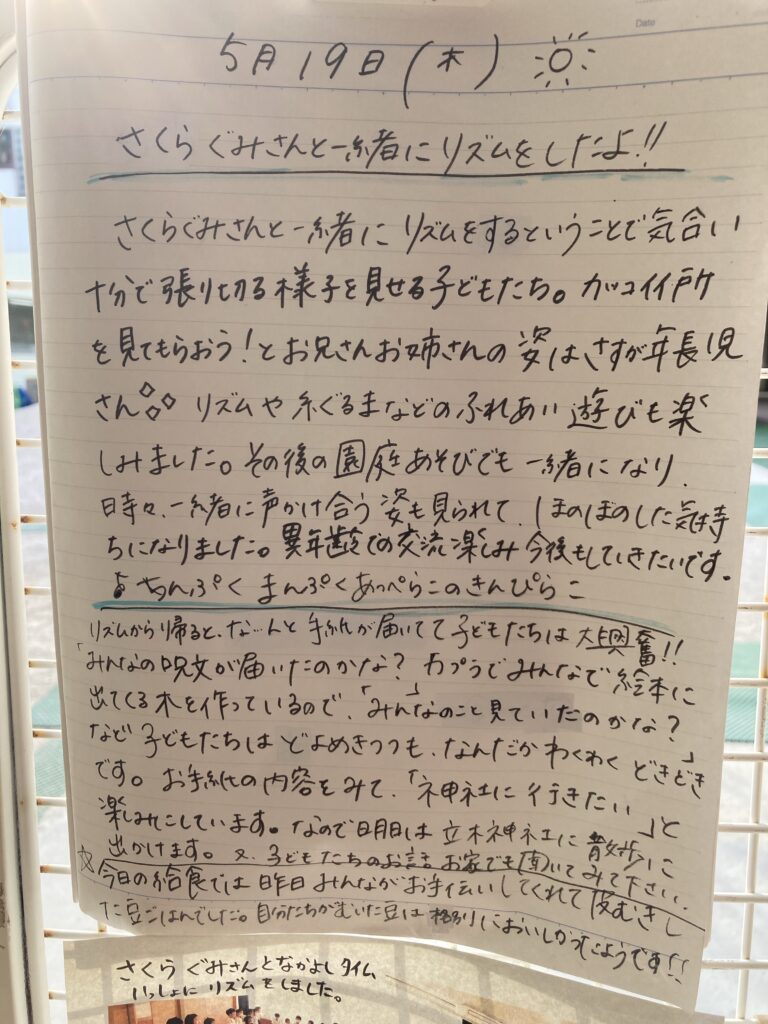 Date
5月19日(木)
さくらぐみさんと一緒にリズムをしたよ!!
さくらぐみさんと一緒に リズムをするということで気合い
十分で張り切る様子を見せる子どもたち。カッコイイ所
を見てもらおう!とお兄さんお姉さんの姿はさすが年長児
さん リズムや糸ぐるまなどのふれあい遊びも楽
しみました。その後の園庭あそびでも一緒になり、
時々、一緒に声かけ合う姿も見られて、ほのぼのした気持
ちになりました。異年齢での交流楽しみ今後もしていきたいです。
ちんぷく まんぷくあっぺらこのきんぴらこ
リズムから帰ると、な…んと手紙が届いてて子どもたちは大興奮!!
「みんなの呪文が届いたのかな? カプラでみんなで絵本に
出てくる木を作っているので、「みんなのこと見ていたのかな?」
など子どもたちはどよめきつつも、なんだかわくわくどきどき
です。お手紙の内容をみて、「神社に行きたい」と
楽しみにしています。なので明日は立木神社に散歩に
出かけます。又、子どもたちのお話お家でも聞いてみて下さい。
☆今日の給食では昨日みんながお手伝いしてくれて皮むきし
た豆ごはんでした。自分たちがむいた豆は格別においしかったようです!!
さくらぐみさんとなかよしタイム
いっしょにリズムをしました。